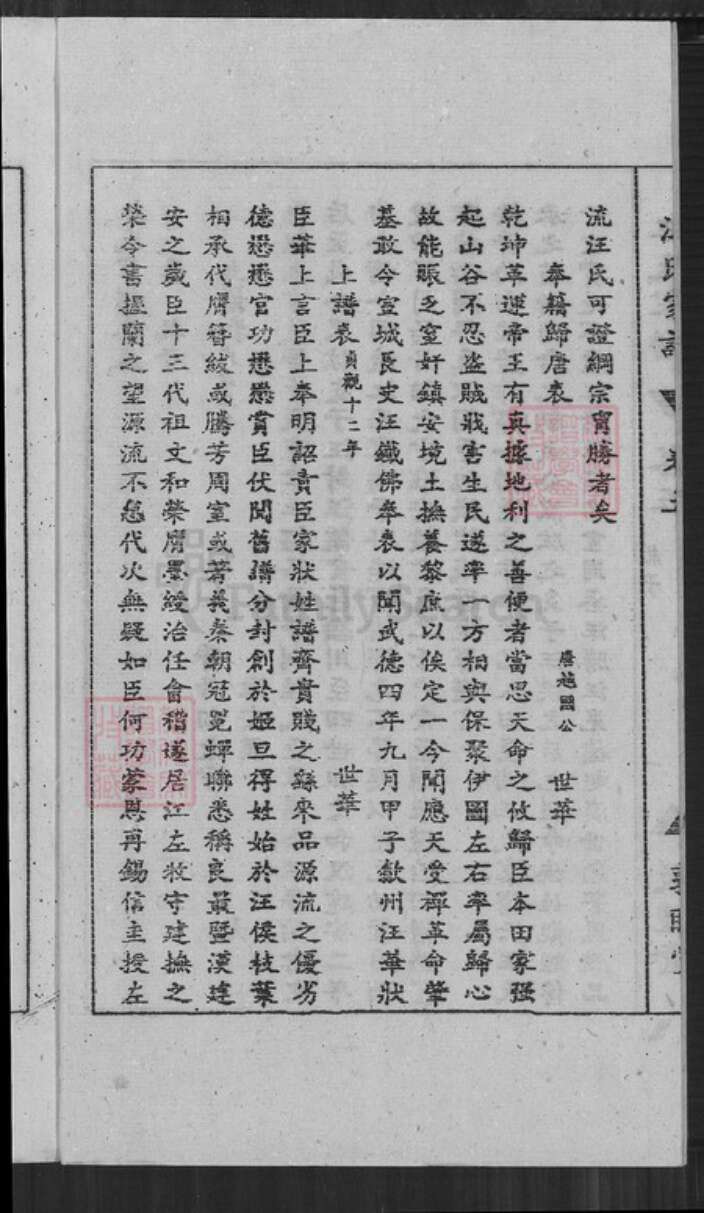 流汪氏可證綱宗實勝者矣
奉籍歸唐表 唐越國公 世華
乾坤革運帝王有真據地利之善使者當思天命之攸歸臣本田家强
起山谷不忍盜賊戕害生民遂率一方相與保聚伊國左右率屬歸心
故能賑乏窒奸鎮安境土撫養黎庶以俟定一今聞應天受禪革命肇
基敢令宣城長史汪鐵佛奉表以聞武德四年九月甲子歙州汪華狀
上譜表貞觀十二年 世華
臣華上言臣上奉明詔責臣家狀姓譜齊貴賤之繇來品源流之優劣
德懋懋官功懋懋賞臣伏聞舊譜分封創於姬旦得姓始於汪侯枝葉
相承代膺簪紱或騰芳周室或著義秦朝冠冕蟬聯悉稱良最暨漢建
安之歲臣十三代祖文和榮膺墨綬治任會稽遂居江左牧守建撫之
榮令書握蘭之望源流不怠代次無疑如臣何功蒙恩再錫信圭授左
汪氏家譜 卷之